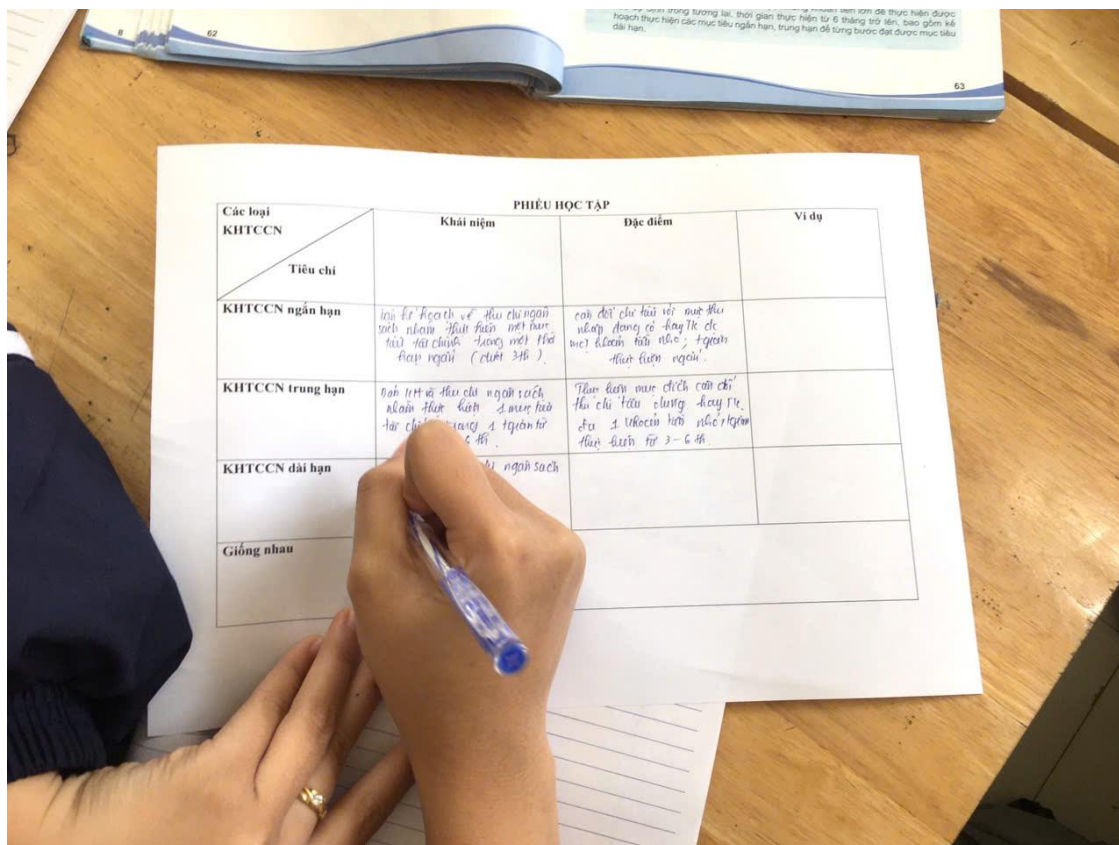 8
62
lớn để thực hiện được
trong tương lai, thời gian thực hiện từ 6 tháng trở lên, bao gồm kế
hoạch thực hiện các mục tiêu ngắn hạn, trung hạn để từng bước đạt được mục tiêu
dài hạn.
63
PHIẾU HỌC TẬP
Các loại
KHTCCN
Tiêu chí
Khái niệm
Đặc điểm
Ví dụ
KHTCCN ngắn hạn
kế hoạch về thu chi ngân
sách nhằm thực hiện một mục
tiêu tài chính trong một thời
ngắn (dưới 3th).
cân đối chi tiêu với mức thu
nhập đang có hay TK để
một khoản tiền nhỏ; tgian
thực hiện ngắn.
KHTCCN trung hạn
thu chi ngân sách
nhằm thực hiện 1 mục tiêu
tài 1 tgian từ
6 th.
Thực hiện mục đích cân đối
thu chi tiêu dùng hay TK
1 khoản tiền nhỏ, tgian
thực hiện từ 3-6 th.
KHTCCN dài hạn
ngân sách
Giống nhau